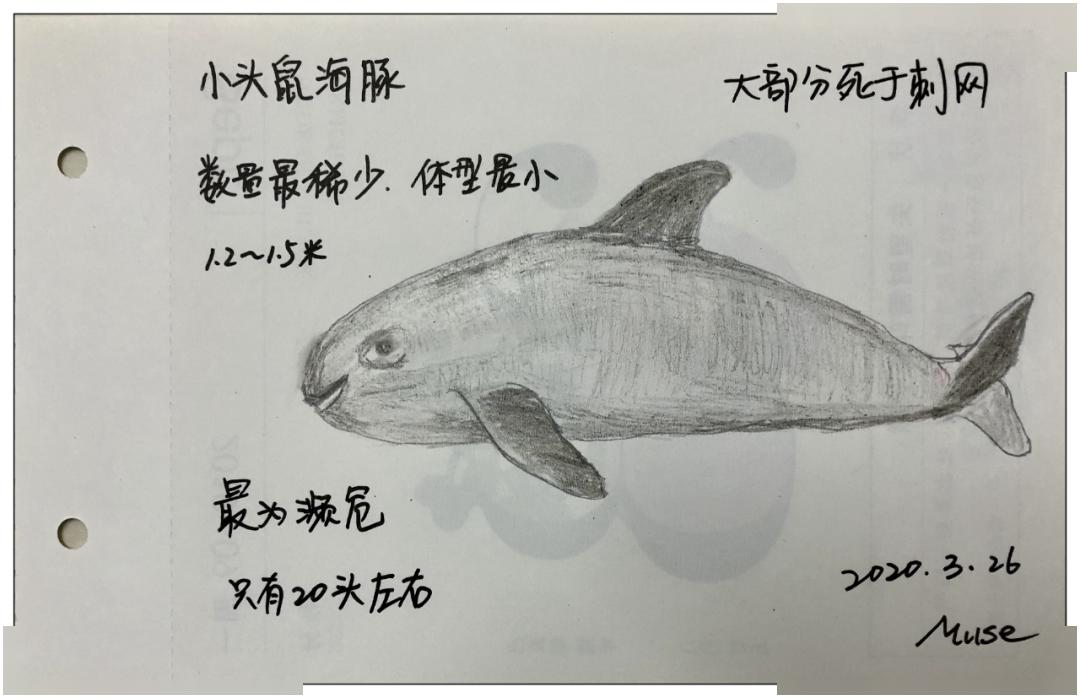 小头鼠海豚
大部分死于刺网
数量最稀少.体型最小
1.2~1.5米
最为濒危
只有20头左右
2020.3.26
Muse